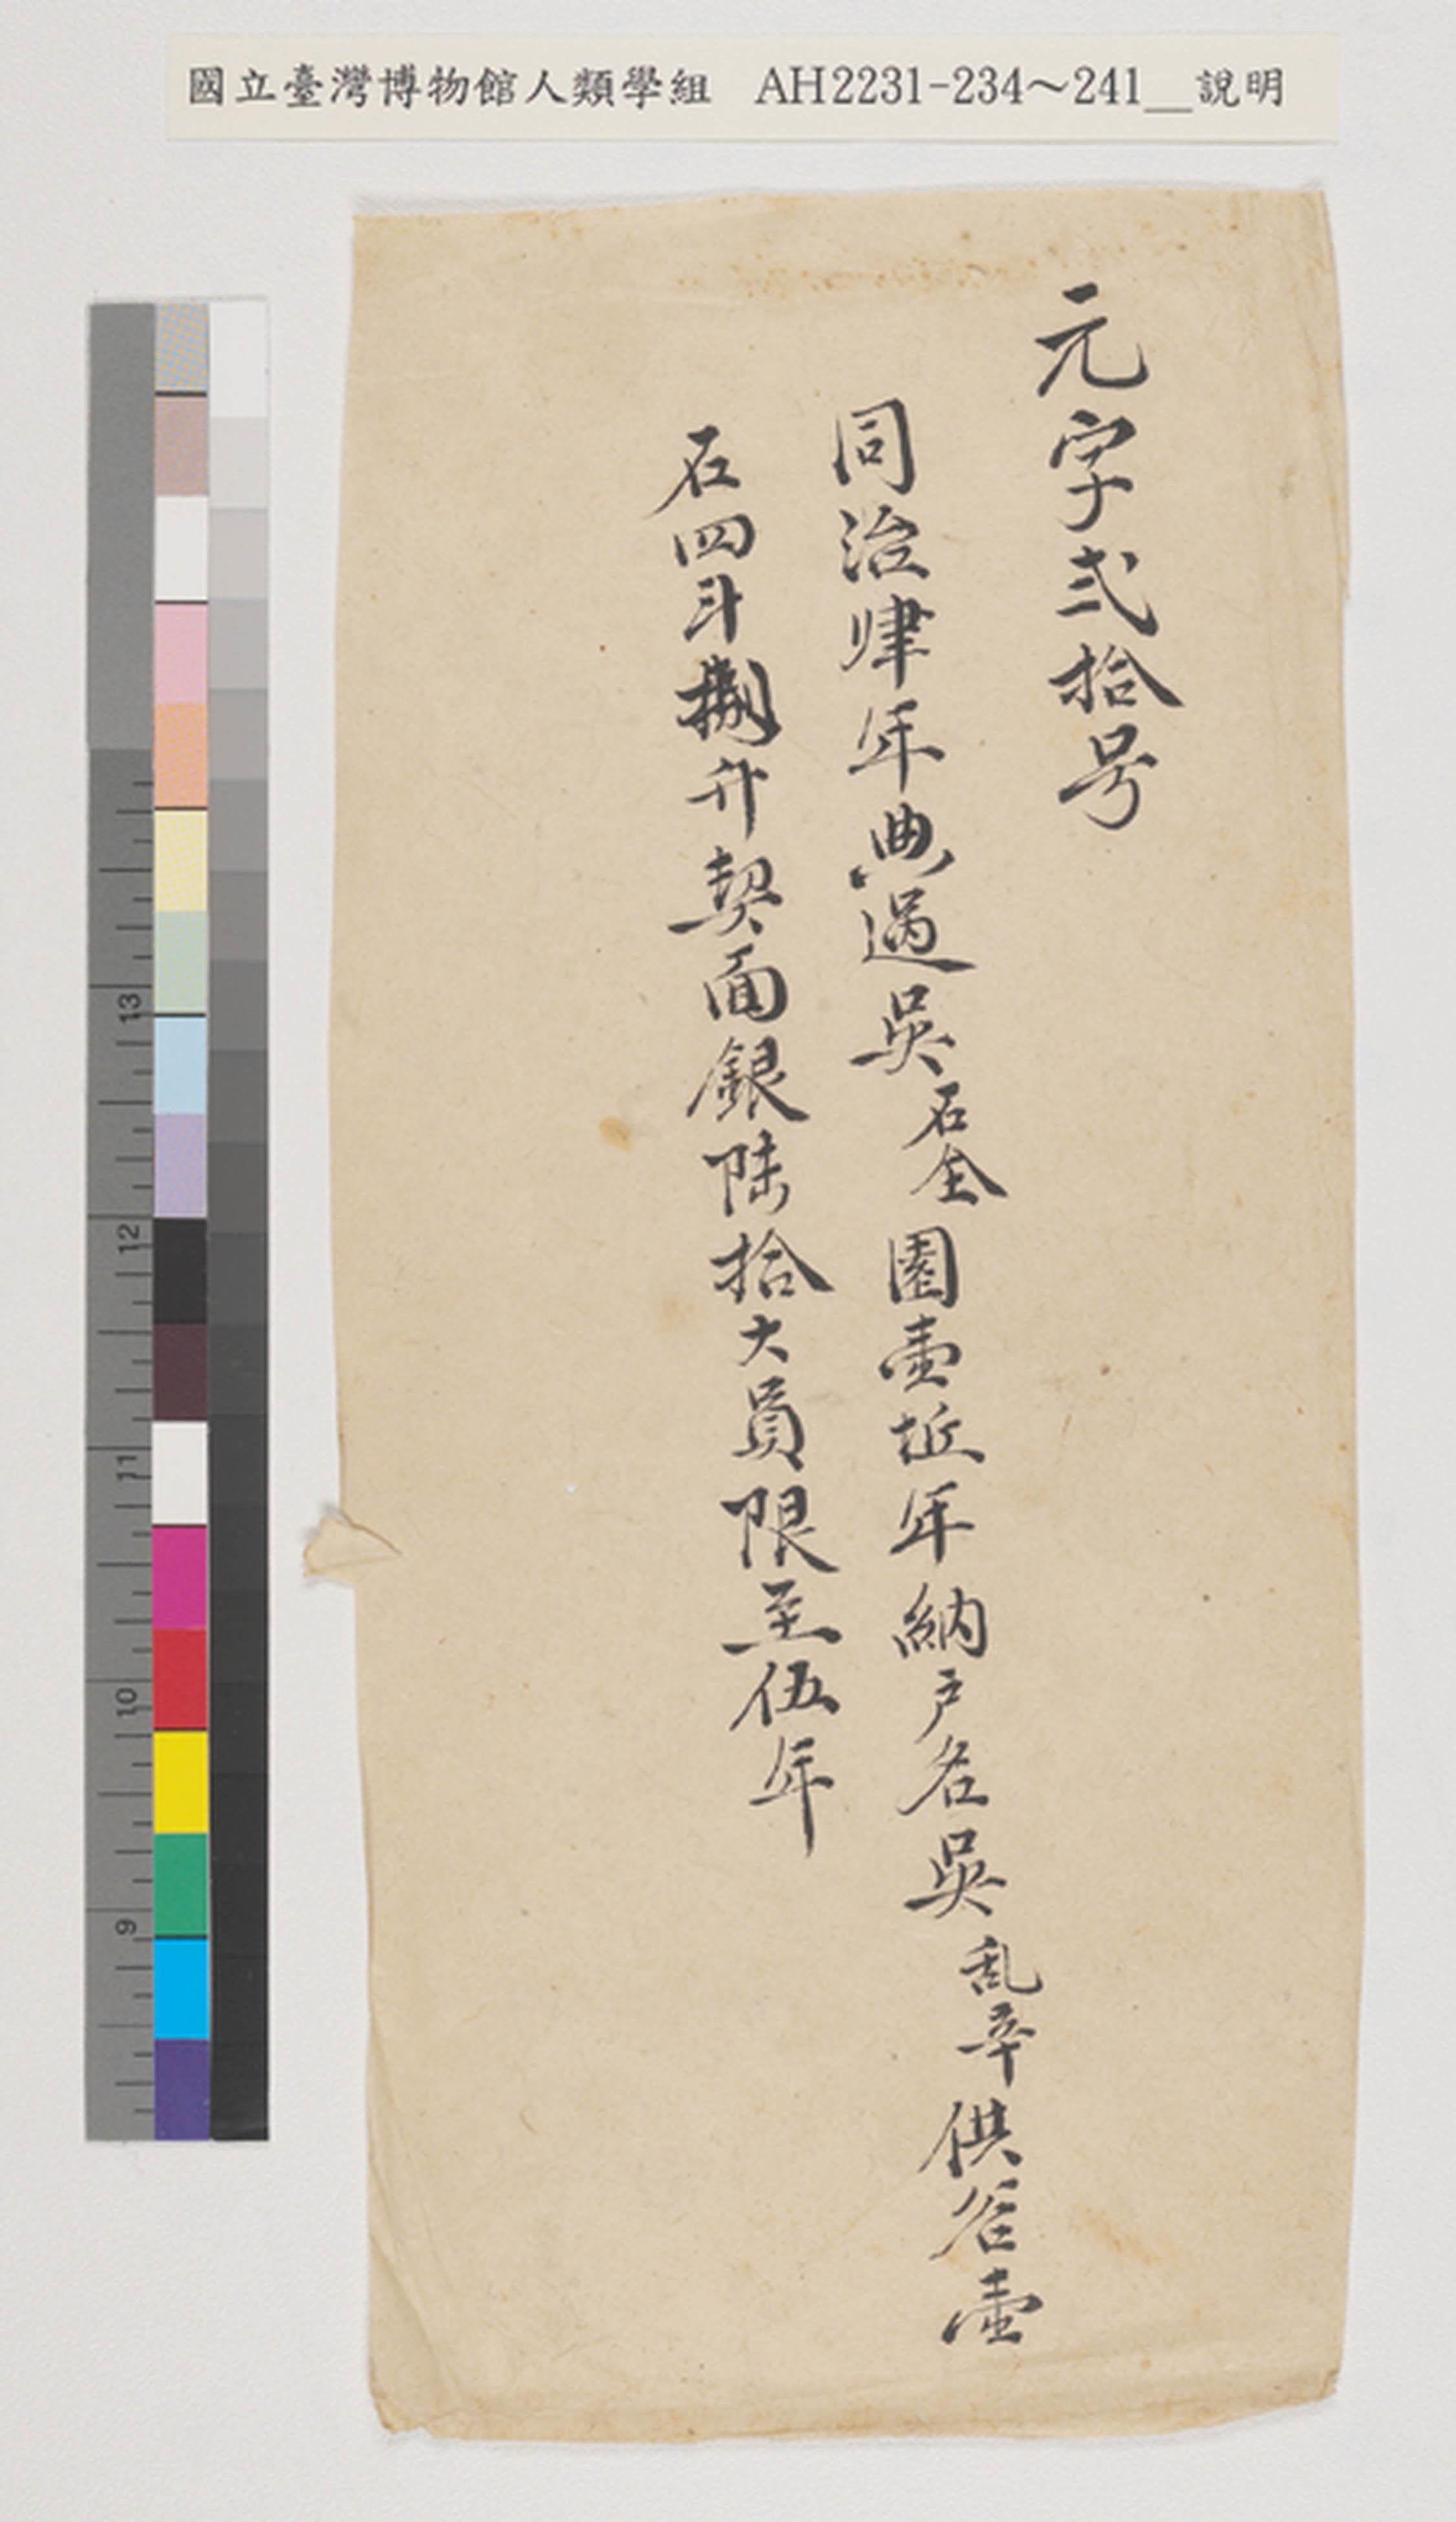 國立臺灣博物館人類學組 AH2231-234～241__說明
元字弍拾号
同治肆年典過吳石全園壹坵年納户名吳乱辛供谷壹
石四斗捌升契面銀陸拾大員限至伍年
13
12
11
10
9